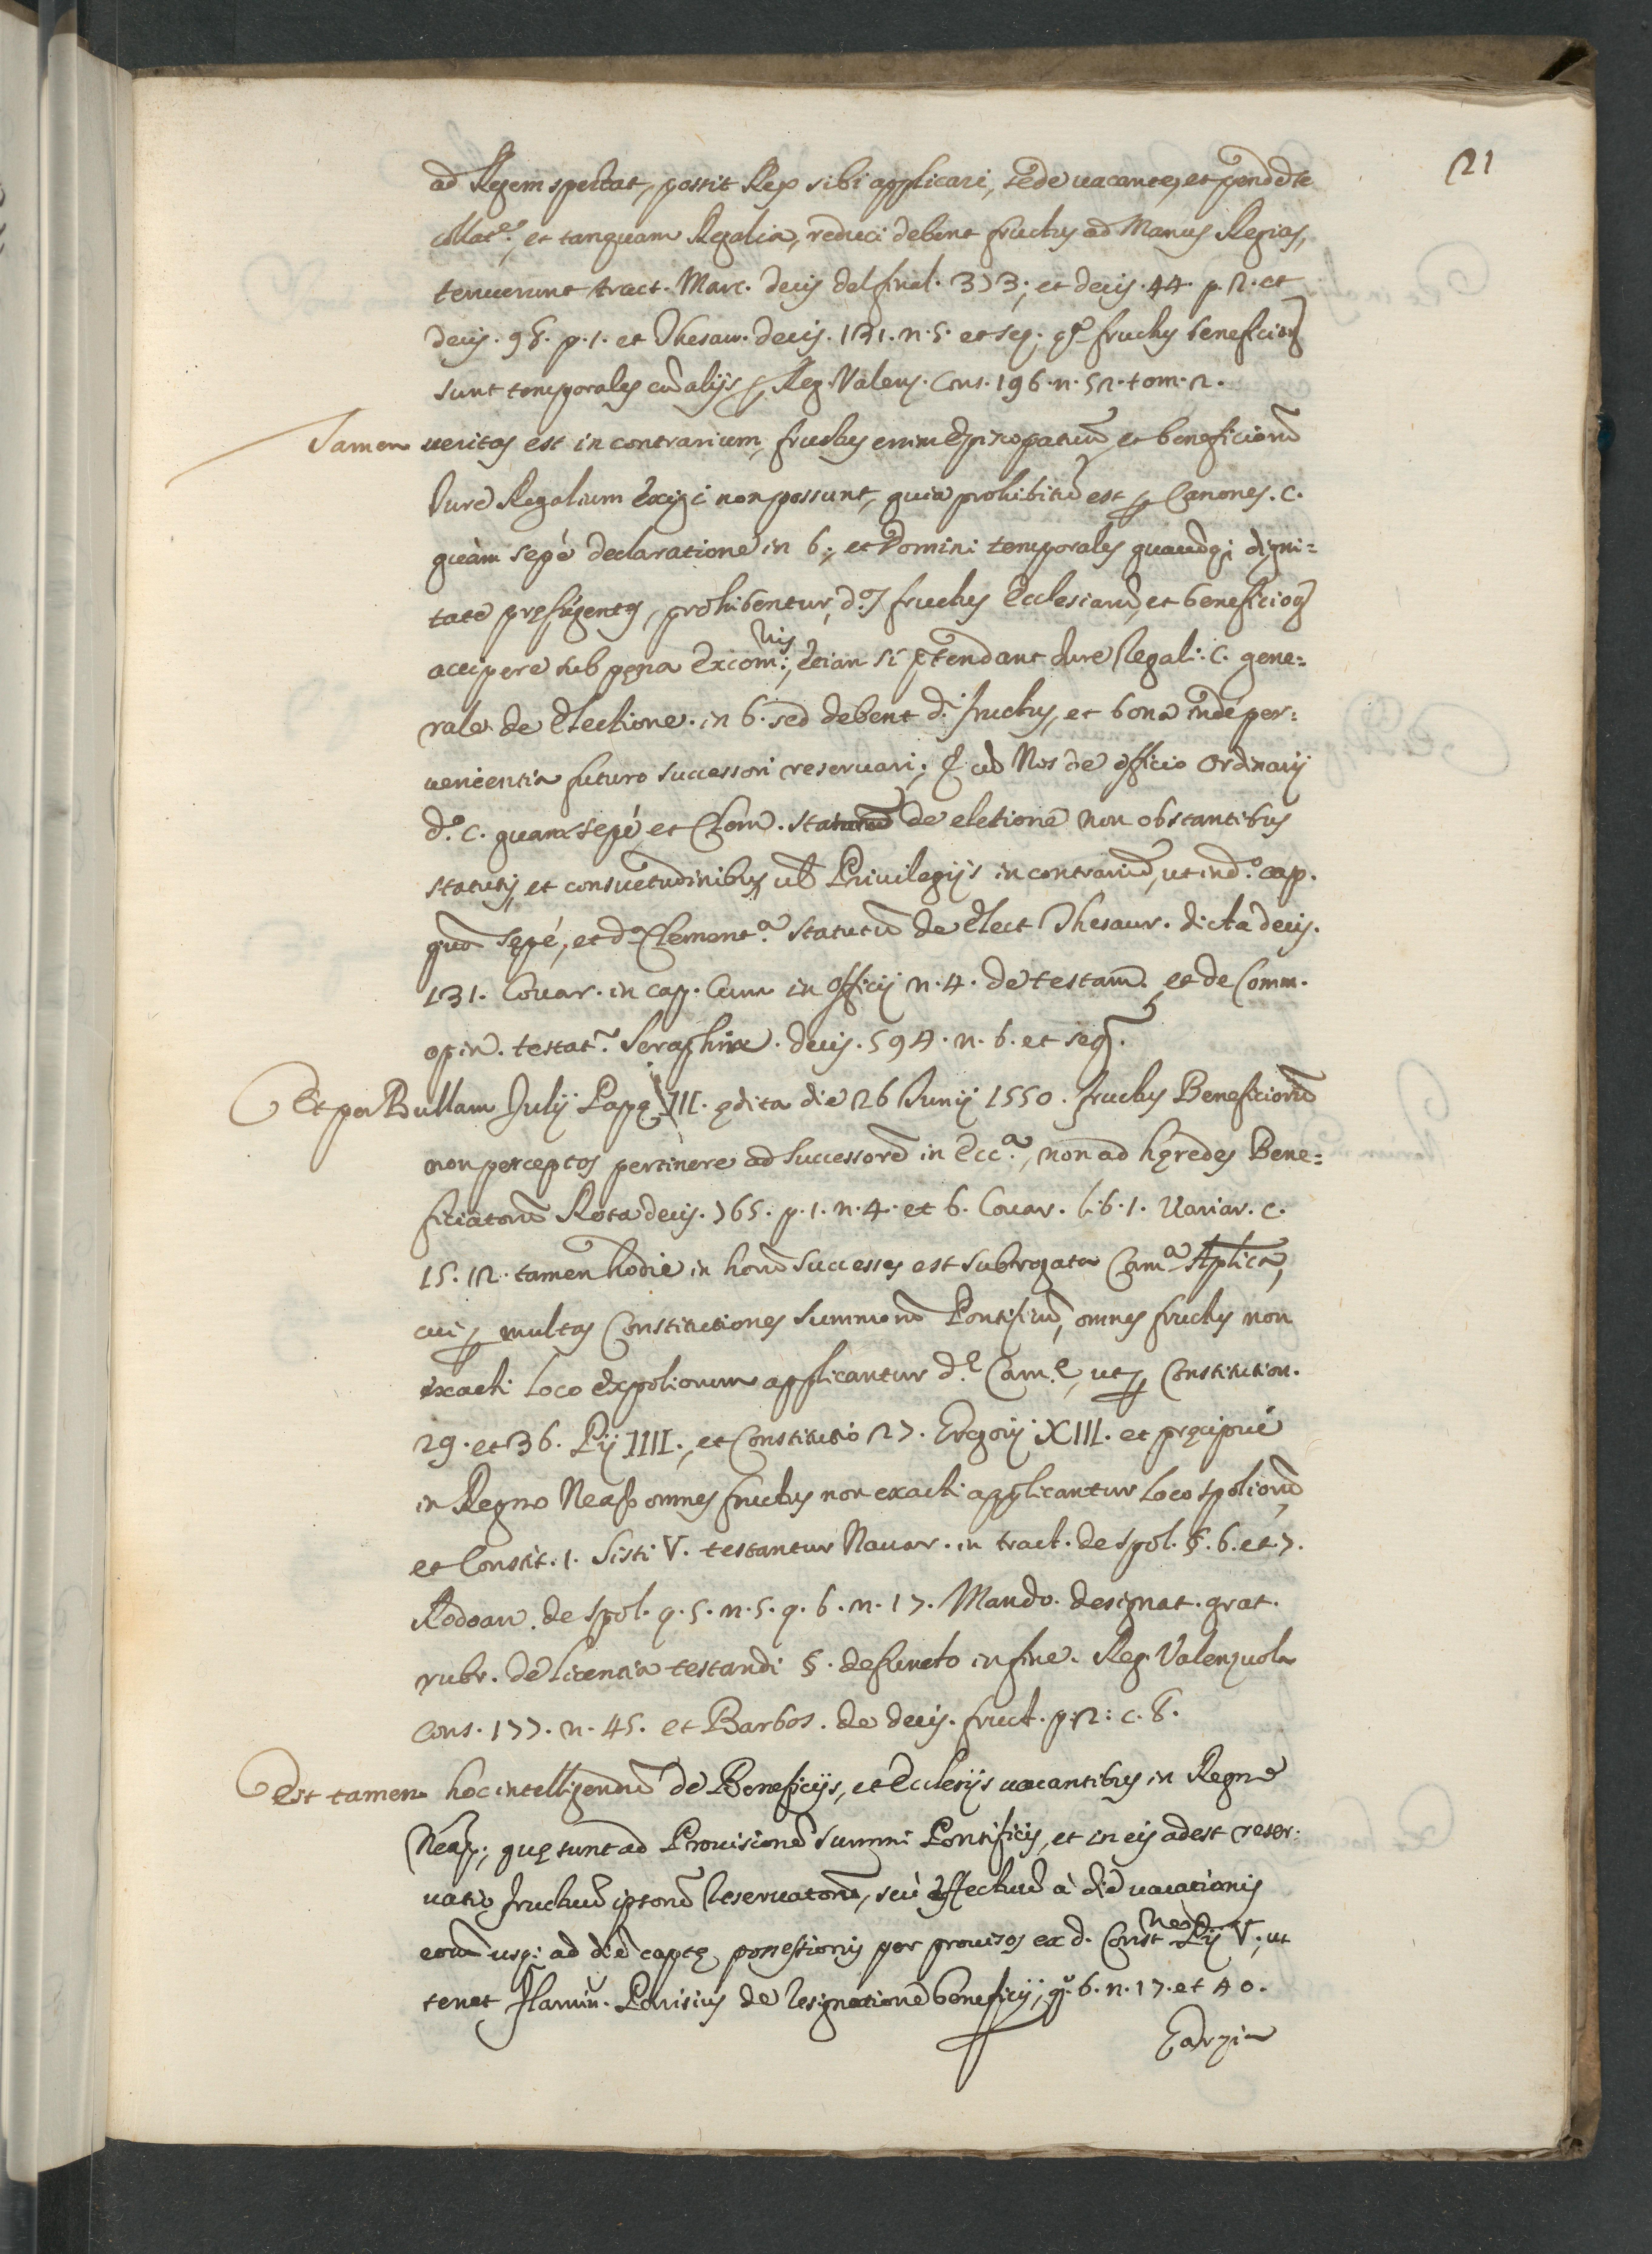 21
ad Regem spectat, possit Rex sibi applicari, sede uacante, et pendēte
collat.e, et tanquam Regalia, reduci debent fructus ad Manus Regias,
tenuerunt tract. Marc. decis delfinal. 373; et decis. 44. p. 2. et
decis. 98. p. 1. et Thesaur. decis. 131. n. 5. et seq. fructus beneficior
sunt temporales cū alijs Reg. Valenz. Cons. 196. n. 52. tom. 2.
Tamen ueritas est in contrarium, fructus enim Episcopatuū, et beneficiorū
Iure Regalium exigi non possunt, quia prohibitū est p Canones. c.
quàm sepè declaratione in 6; et Domini temporales quauis digni=
tate pręfulgentes, prohibentur, d.os fructus Ecclesiarū, et beneficior
accipere sub pęna Excom.nis; etian si p̄tendant Iure Regali. C. gene=
rale de Electione. in 6. sed debent d.i fructus, et bona inde per=
uenientia futuro successori reseruari; C. cū Nos de officio Ordinarij
d.o c. quam sepé et Clem. statutū de eletione non obstantibus
statutis, et consuetudinibus, ul Priuilegijs in contrariū, ut in d.o cap.
quā sepé, et d.a Clement.a statutū de Elect Thesaur. dicta decis.
131. Couar. in cap. Cum in Officijs n. 4. de testam. et de Comm.
opin. testat. Seraphin. decis. 594. n. 6. et seq.
Et per Bullam Iulij Papę III. ędita die 26 Iunij 1550. fructus Beneficiorū
non perceptos pertinere ad Successorē in Ecc.a, non ad hęredes Bene=
ficiatorū Rota decis. 765. p. 1. n. 4. et 6. Couar. lib. 1. Uariar. c.
15. 12. tamen hodie in horū successes est subrogata Cam.a Aplica,
cui p multas Constitutiones Summorū Pontificū, omnes fructus non
exacti loco expoliorum applicantur d.ę Cam.ę, ut p Constitution.
29. et 36. Pij IIII., et Constitutio 27. Gregorij XIII. et pręcipuè
in Regno Neap omnes fructus non exacti applicantur loco spoliorū
et Constit. 1. Sisti V. testantur Nauar. in tract. de spol. §. 6. et 7.
Rodoan. de spol. q. 5. n. 5. q. 6. n. 17. Mando. de signat. grat.
rubr. de licentia testandi §. defuncto in fine. Reg. Valenzuola
cons. 177. n. 45. et Barbos. de decis. fruct. p. 2: c. 8.
Est tamen hoc intelligendū de Beneficijs, et Ecclesijs uacantibus in Regno
Neap; quę sunt ad Prouisionē Summi Pontificis, et in eis adest reser=
uatio fructuū ipsorū Reseruatorū, seù effectuū à diē uacationis
eorū usq; ad diē captę possessionis per prouisos ex d. Const.ne Pij V., ut
tenet Flamin. Parisius de resignatione beneficij, q. 6. n. 17. et 40.
Garzia